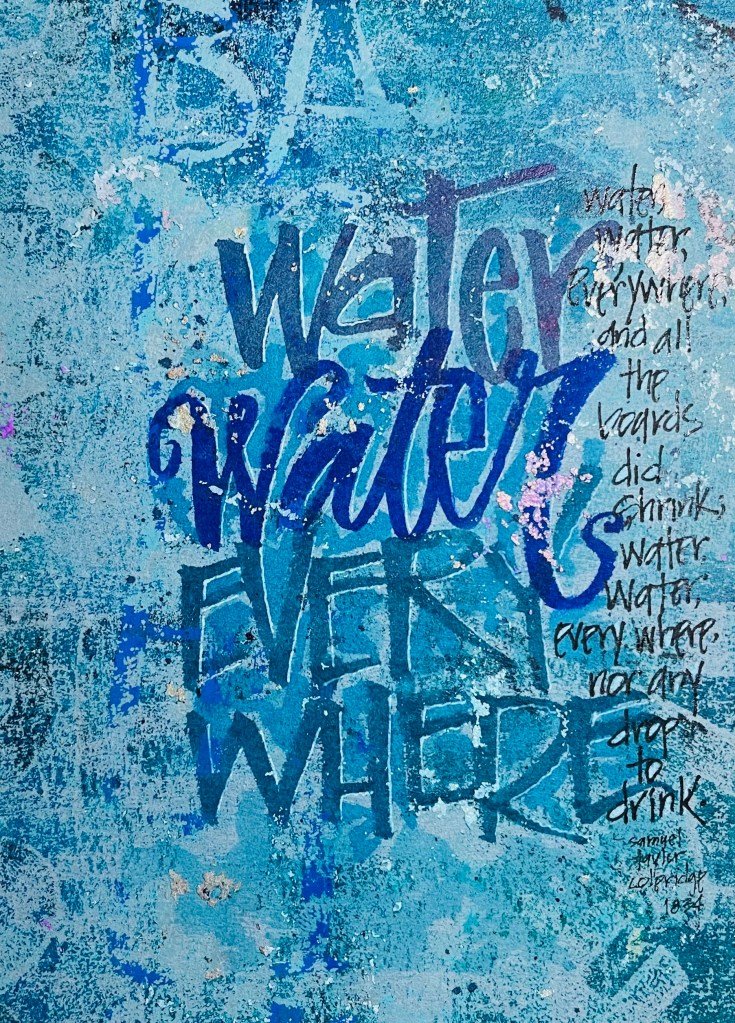 BA
Water
Water
EVERY
WHERE
water,
water,
everywhere,
and all
the
boards
did
shrink;
water
water,
every where,
nor any
drop
to
drink.
samuel
taylor
coleridge
1834